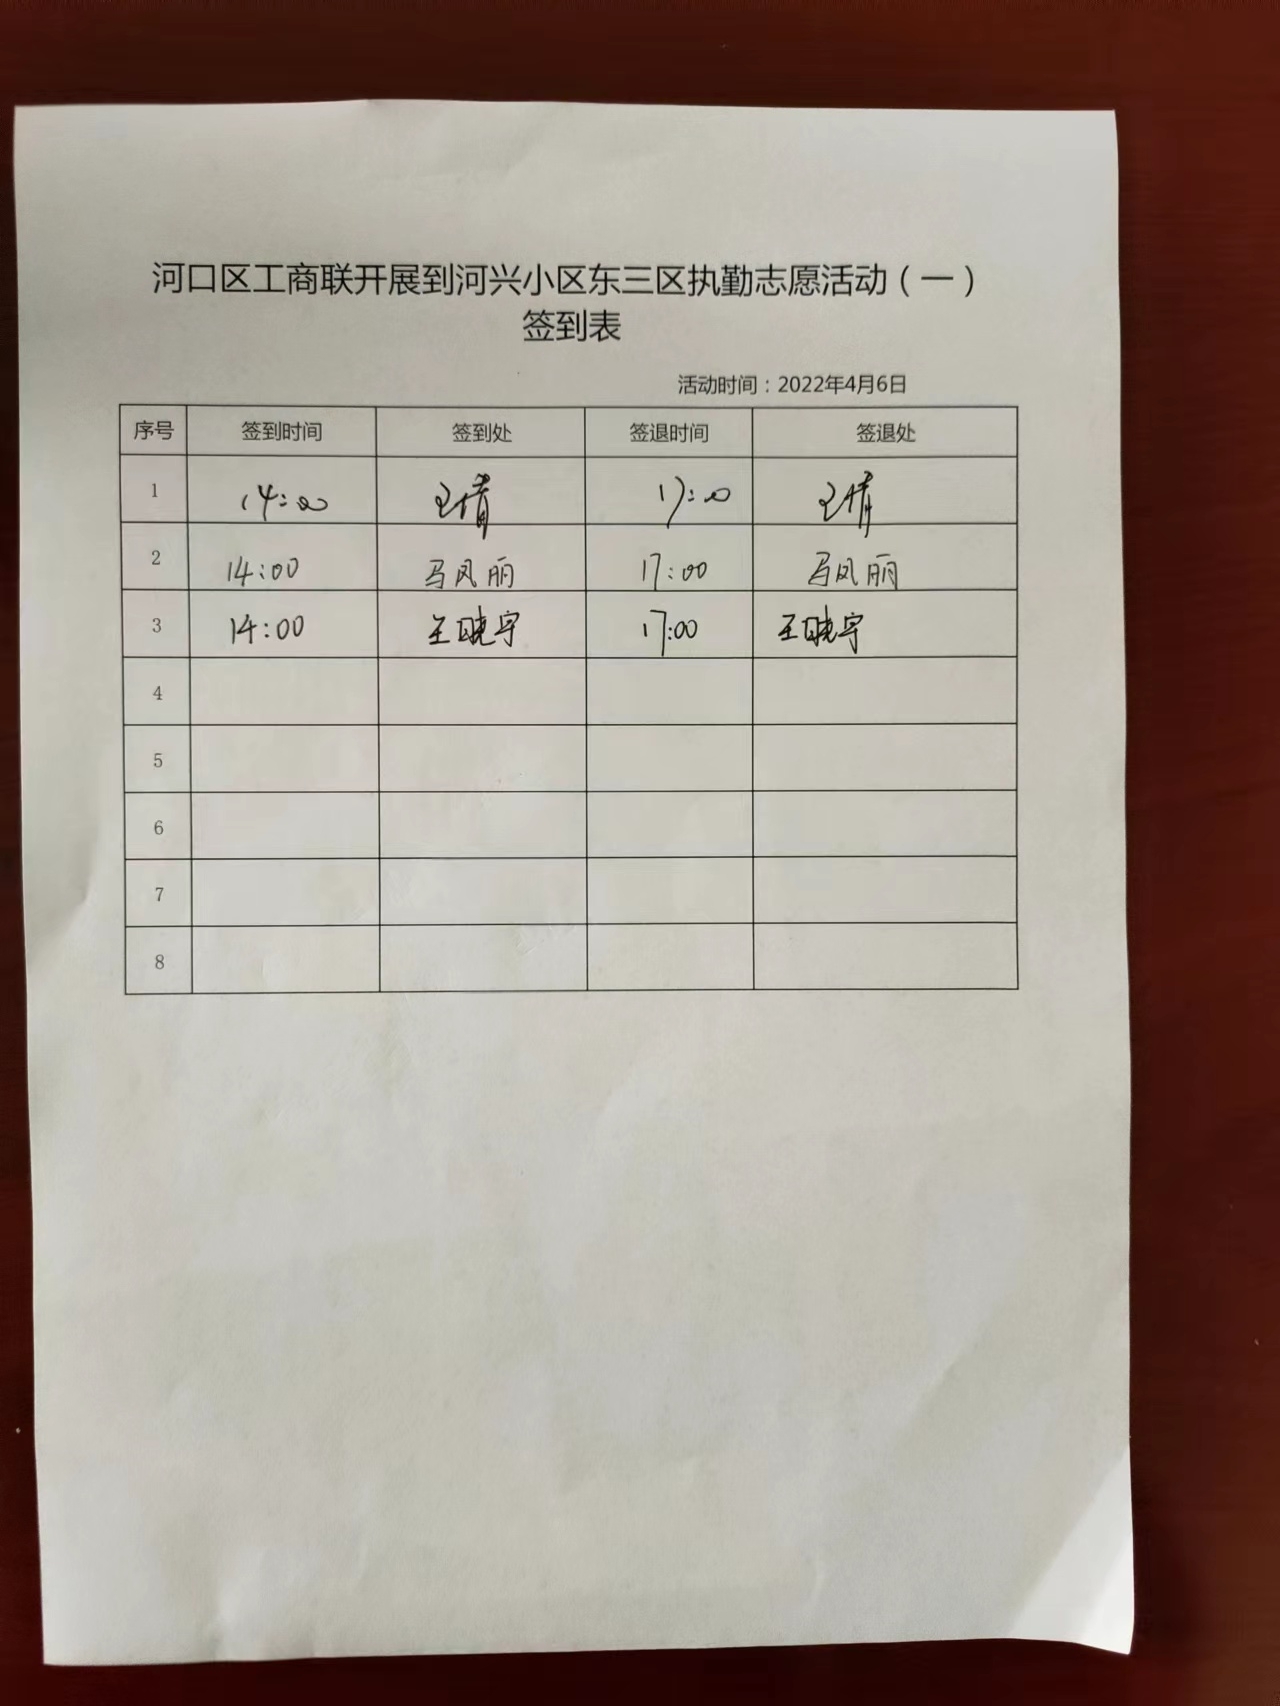 河口区工商联开展到河兴小区东三区执勤志愿活动（一）
签到表
活动时间：2022年4月6日
序号 签到时间 签到处 签退时间 签退处
1 14:00 王倩 17:00 王倩
2 14:00 马凤丽 17:00 马凤丽
3 14:00 王晓宇 17:00 王晓宇
4
5
6
7
8